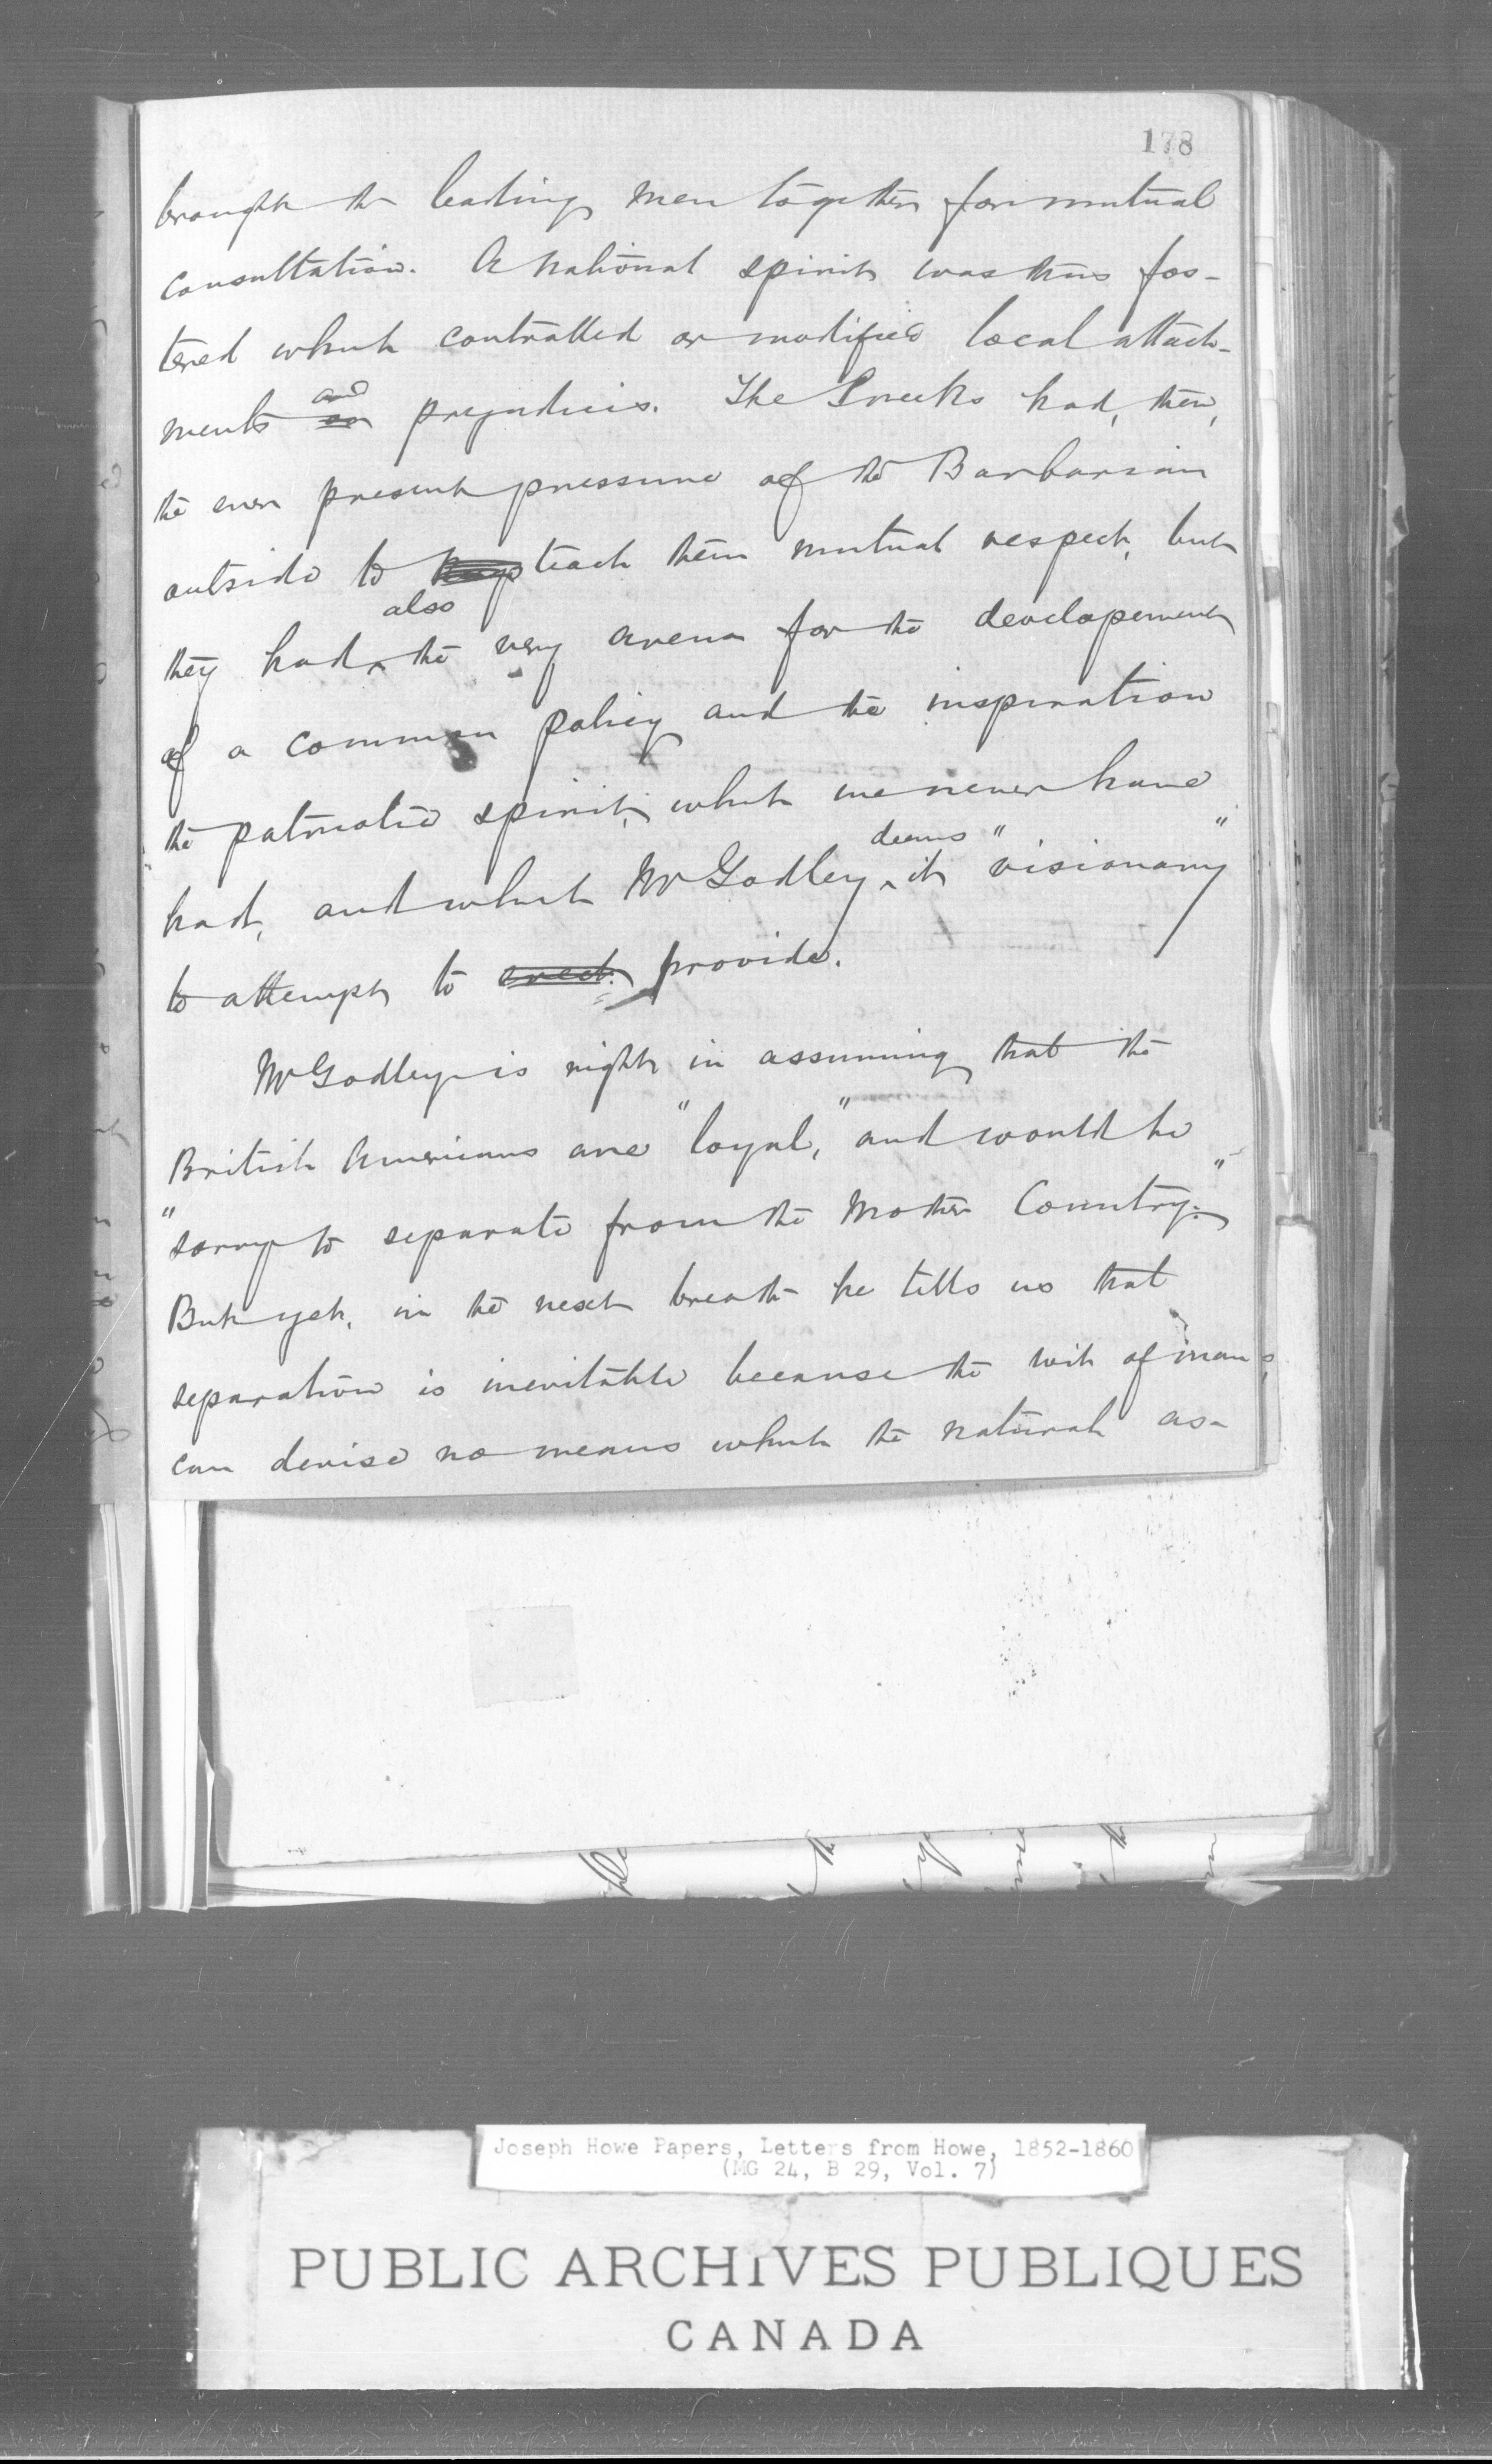 178
brought the leading men together for mutual
consultation. A national spirit was thus fos-
tered which controlled or modified local attach-
ments and prejudices. The Greeks had, then,
the ever present pressure of the Barbarian
outside to teach them mutual respect, but
they had also the very arena for the developement
of a common policy and the inspiration
the patriotic spirit, which we never have
had, and which Mr Godley deems it "visionary"
to attempt to erect provide.
Mr Godley is right in assuming that the
British Americans are "loyal," and would be
"sorry to separate from the Mother Country."
But yet, in the next breath he tells us that
separation is inevitable because the wit of man
can devise no means which the natural as-
Joseph Howe Papers, Letters from Howe, 1852-1860
(MG 24, B 29, Vol. 7)
PUBLIC ARCHIVES PUBLIQUES
CANADA